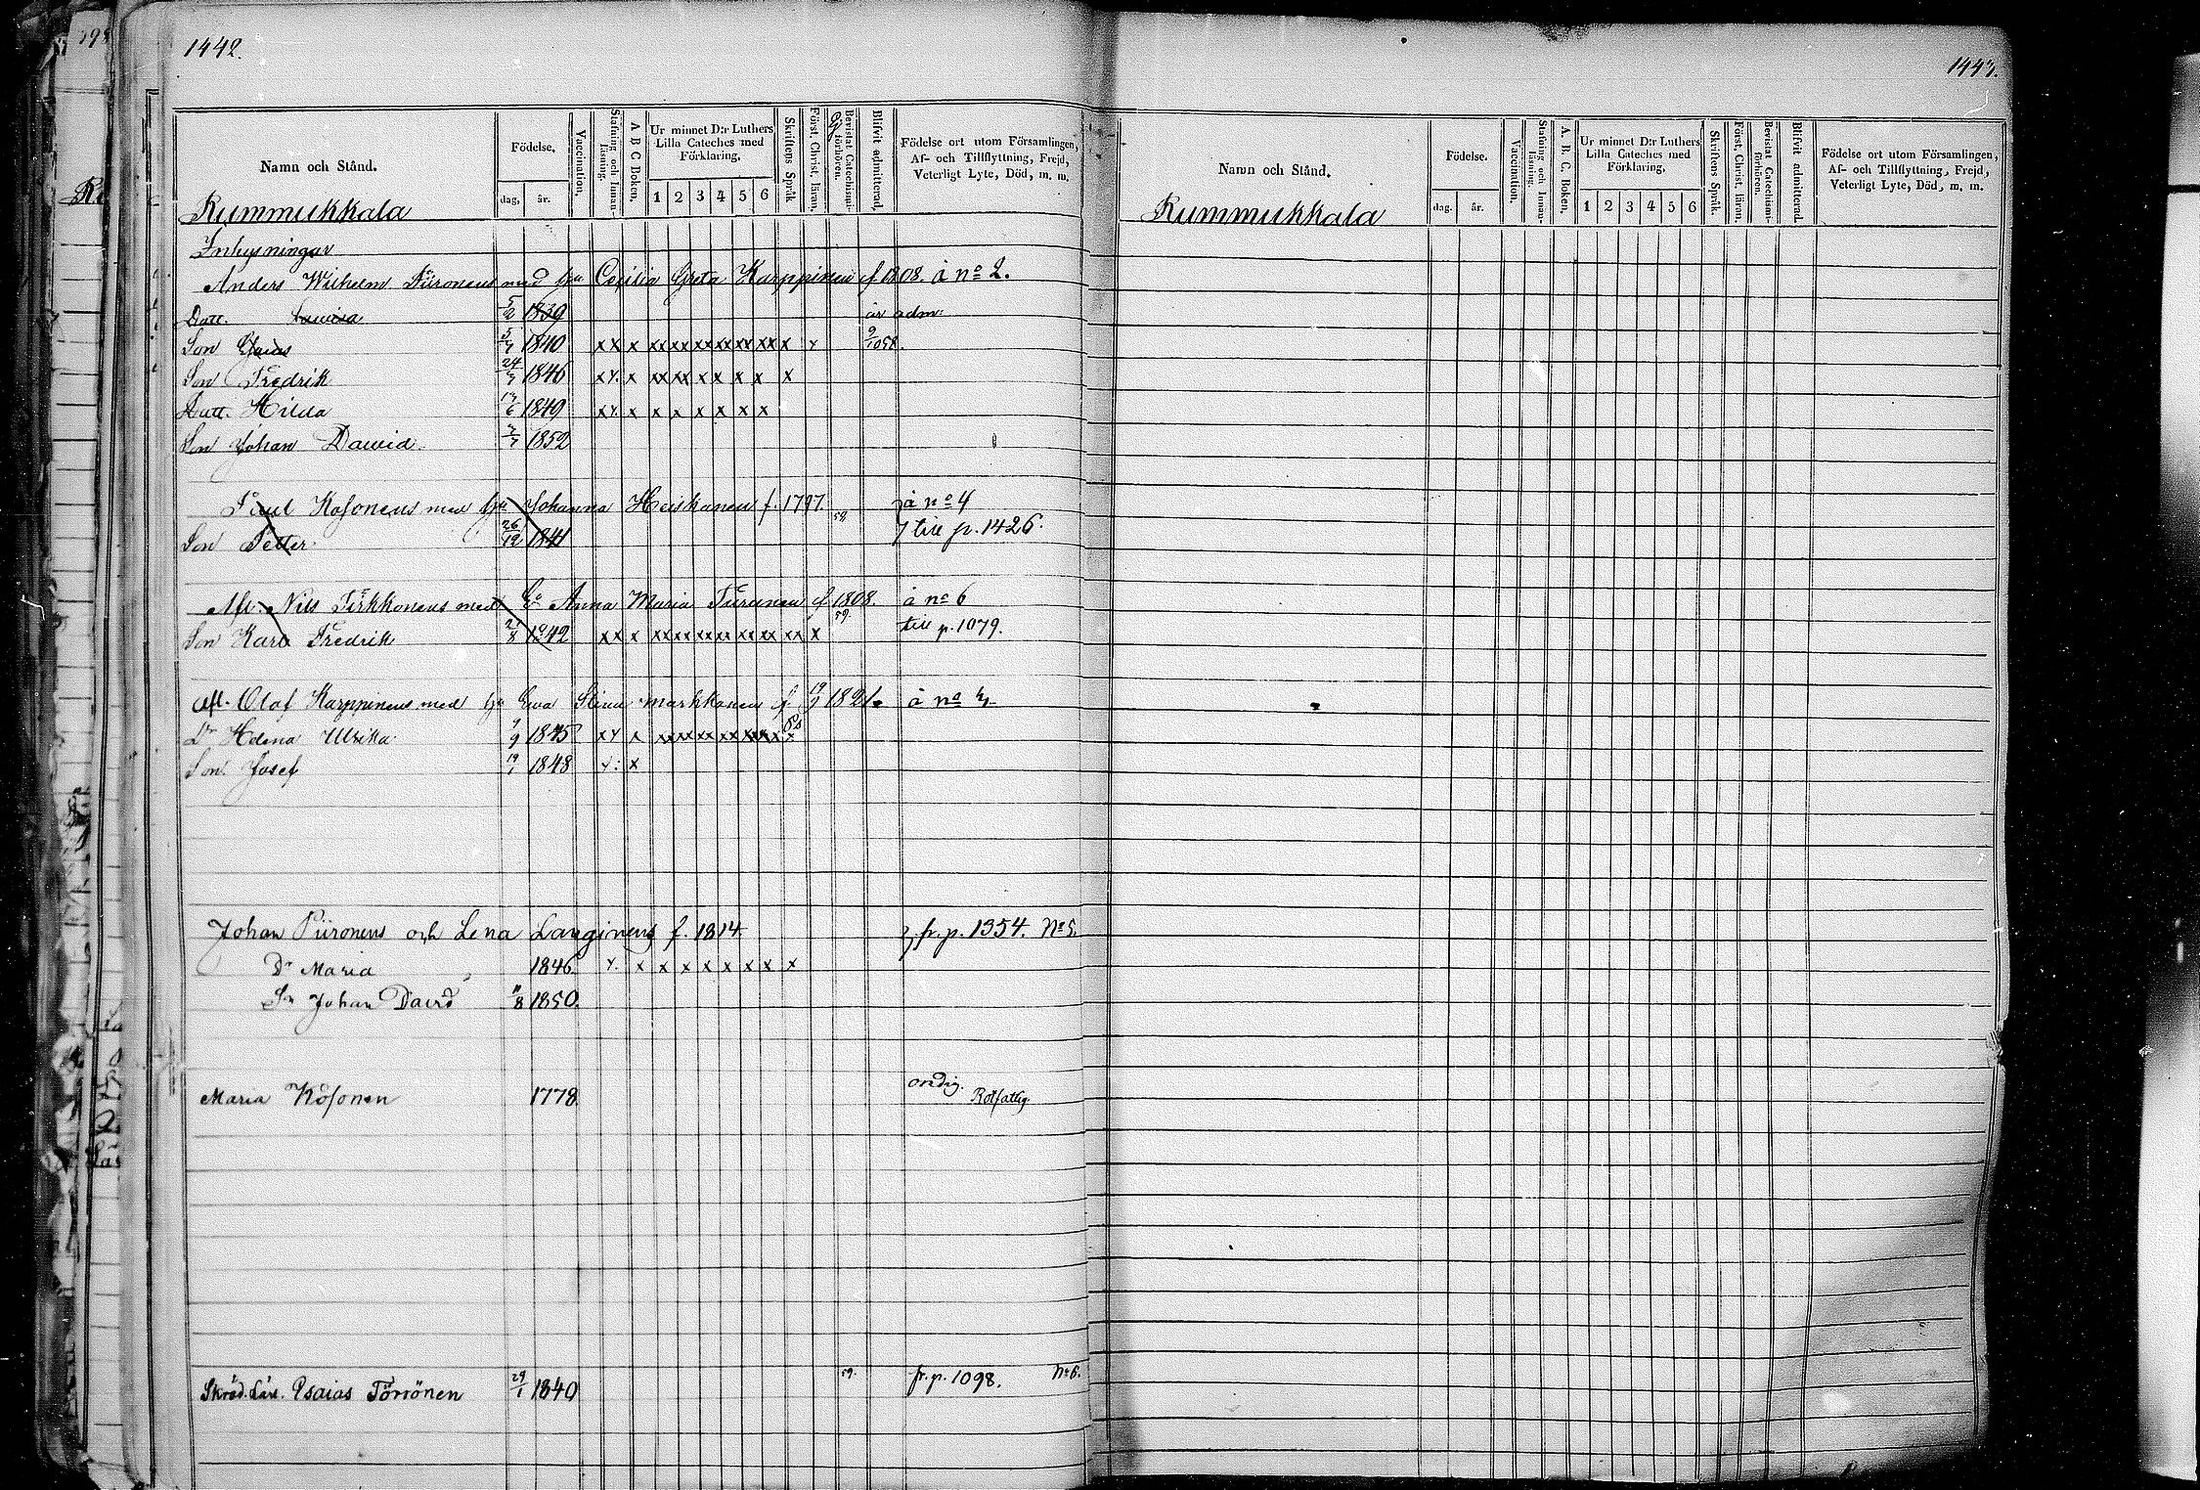 1442.
Namn och Stånd.
Födelse,
dag, år.
Vaccination,
Stafning och Innan-läsning.
A B C Boken,
Ur minnet D:r Luthers Lilla Cateches med Förklaring,
1 2 3 4 5 6
Skriftens Språk
Först. Christ. läran,
Bevistat Catechismi-förhören.
Blifvit admitterad,
Födelse ort utom Församlingen,
Af- och Tillflyttning, Frejd,
Veterligt Lyte, Död, m. m.
Rummukkala
Inhysningar
Anders Wilhelm Piironens med hu Cecilia Greta Karppinen f. 1808. å no 2.
Datt. Lovisa 5/2 1839 är adm:
Son Esaias 5/7 1840 xx x xx xx xx xx xx xx x x 9/1058.
Son Fredrik 24/3 1846 xx x xx xx x x x x x
Datt. Hilda 1849 xx x x x x x x x
Son Johan Dawid 1852
Paul Kosonens med hu Johanna Heiskanen f. 1797. å no 4
Son Petter 26/12 1841 58 till p. 1426.
Afl. Nils Tirkkonens med Ea Anna Maria Turunen f 1808. å no 6
Son Karl Fredrik 1842 xx x xx xx xx xx xx xx x 59. till p. 1079.
Afl. Olof Karppinens med hu Eva Stina Markkanen f 1821. å no
Dr Helena Ulrika 1845 xx x xx xx xx xx xx xx x
Son Josef 19/1 1848 x: x
Johan Piironens och Lena Langinens f. 1814. fr. p. 1354. No 5.
Dr Maria 1846. x. x x x x x x x x
Sn Johan David 11/8 1850.
Maria Kosonen 1778. Rotfattig.
Skräd. Lärl. Esaias Törrönen 29/1 1840 59. fr. p. 1098. No 6.
1443.
Namn och Stånd.
Födelse.
dag. år.
Vaccination.
Stafning och Innan-läsning.
A. B. C. Boken,
Ur minnet D:r Luthers Lilla Cateches med Förklaring,
1 2 3 4 5 6
Skriftens Språk.
Först. Christ. läran,
Bevistat Catechismi-förhören.
Blifvit admitterad.
Födelse ort utom Församlingen,
Af- och Tillflyttning, Frejd,
Veterligt Lyte, Död, m. m.
Rummukkala